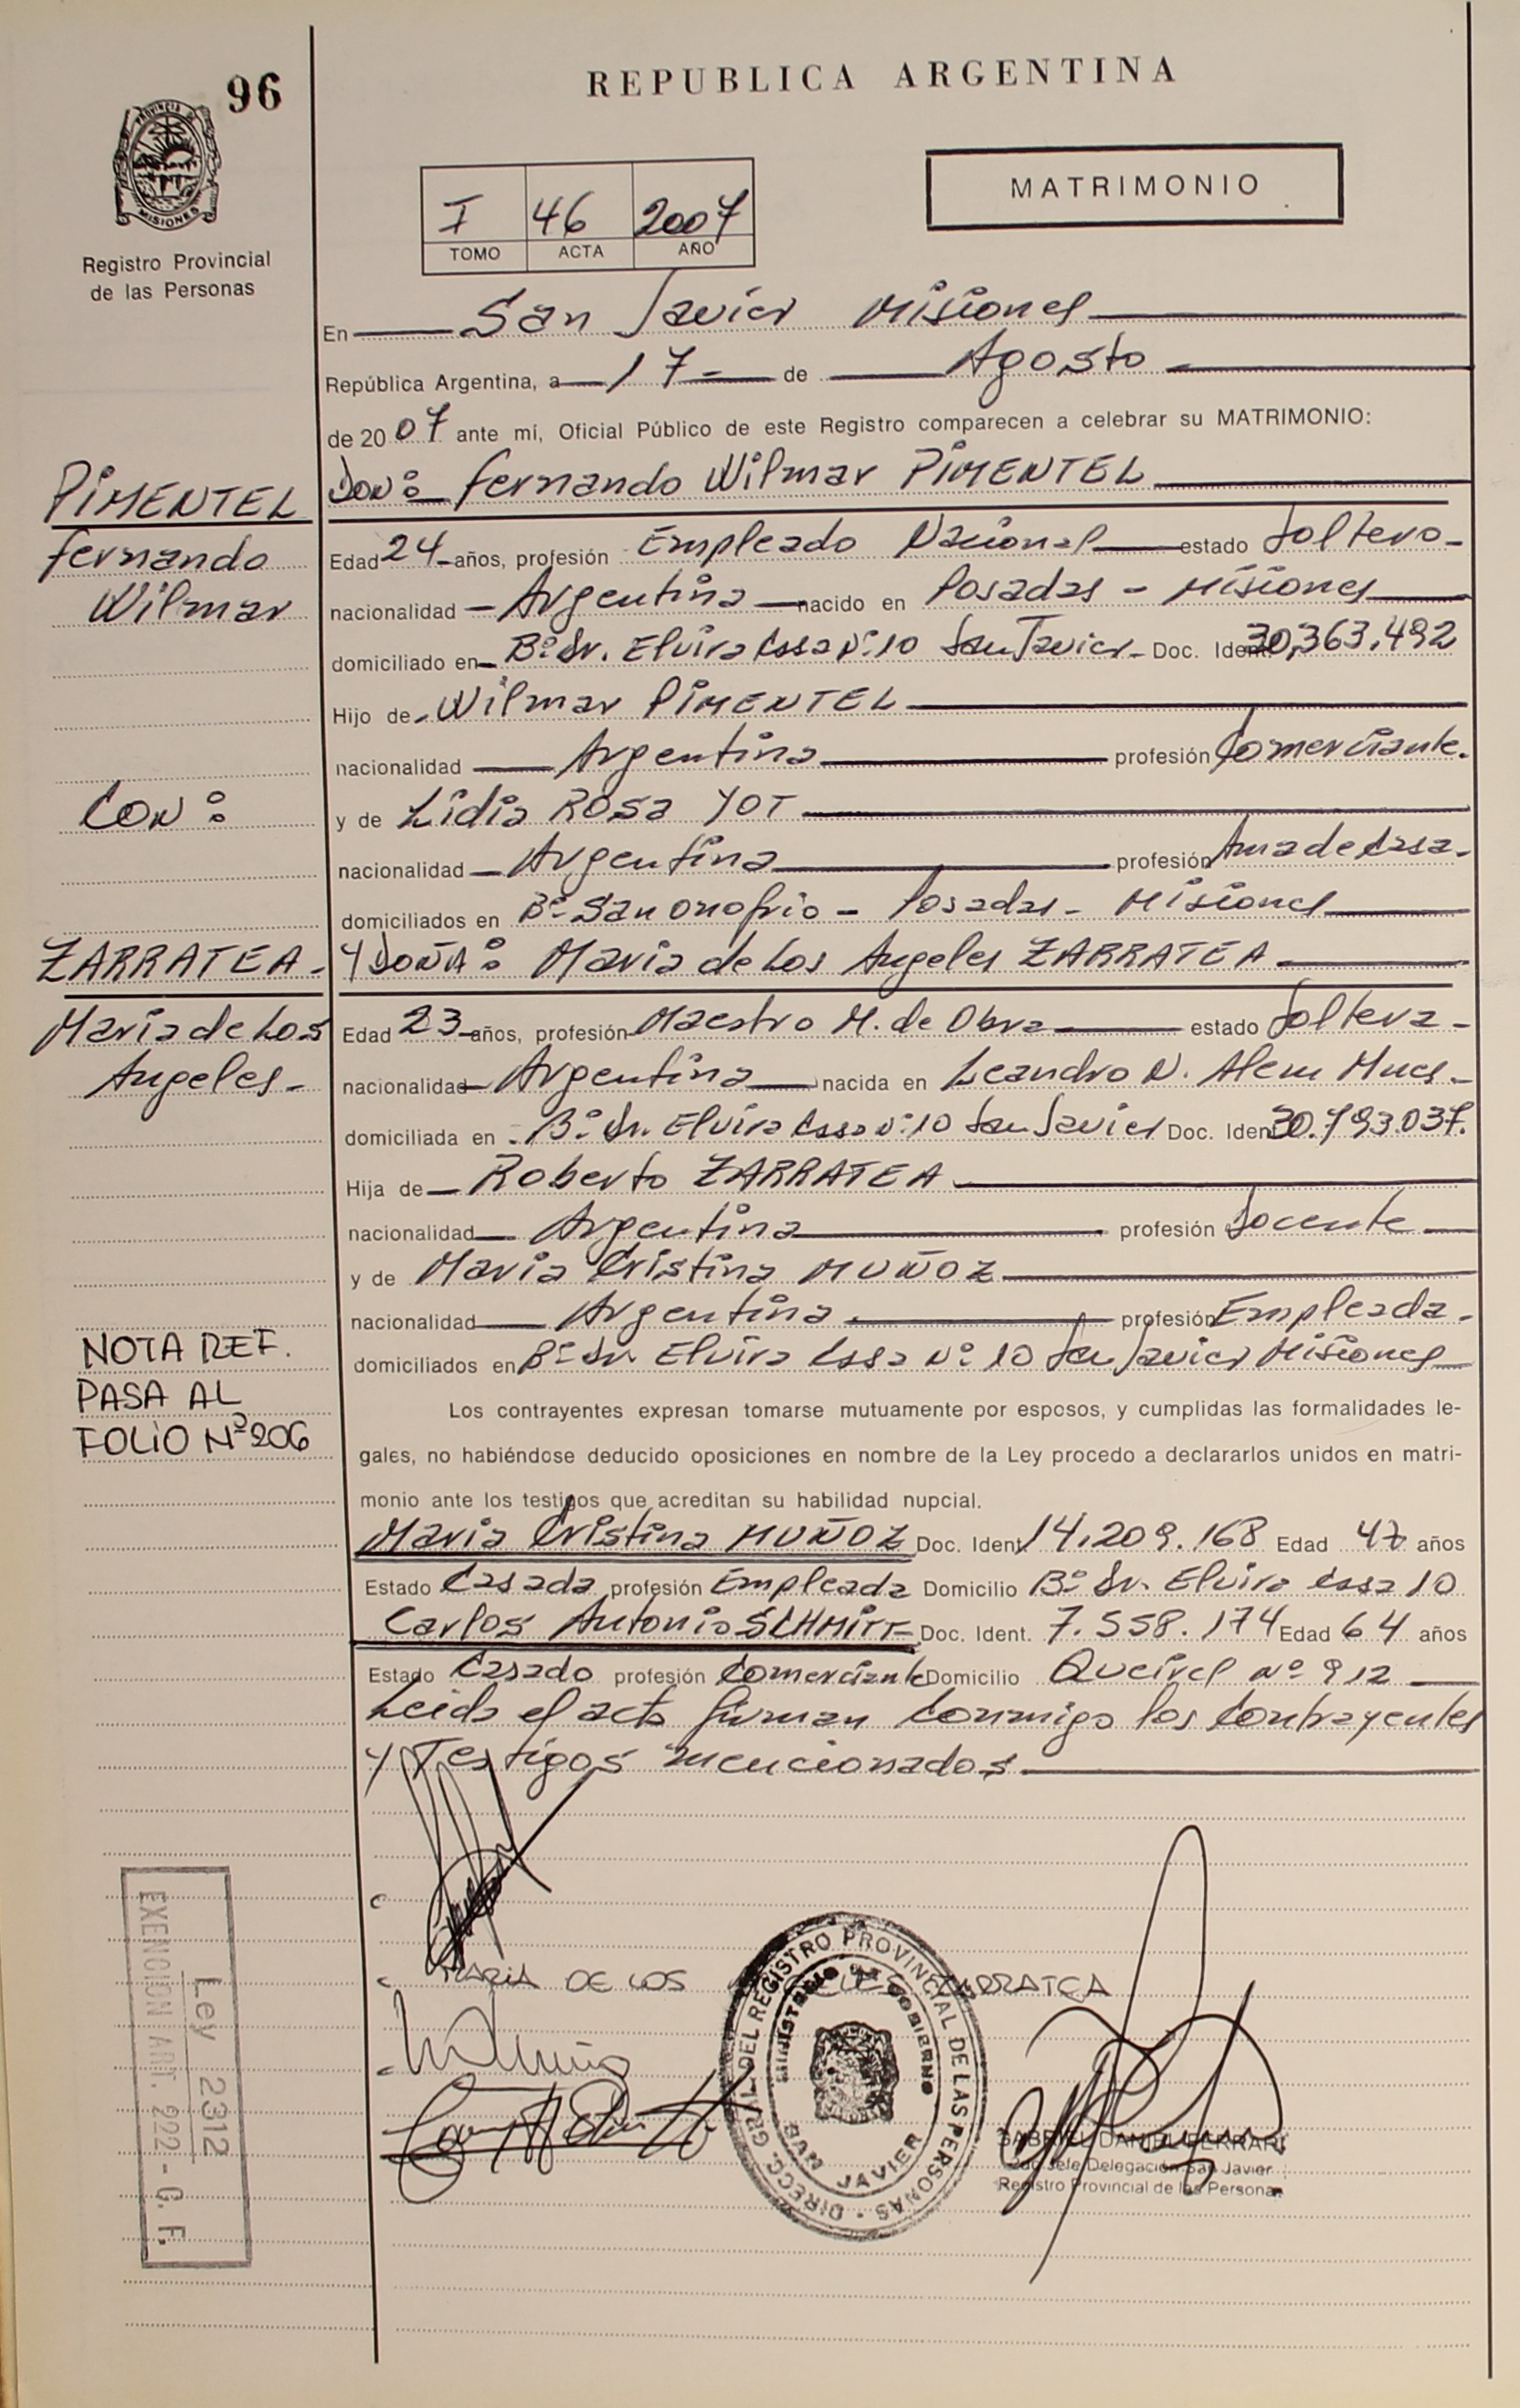 96
REPUBLICA ARGENTINA
PROVINCIA DE MISIONES
Registro Provincial
de las Personas
MATRIMONIO
I 46 2007
TOMO ACTA AÑO
En San Javier Misiones
República Argentina, a 17 de Agosto
de 2007 ante mí, Oficial Público de este Registro comparecen a celebrar su MATRIMONIO:
PIMENTEL
Don: Fernando Wilmar PIMENTEL
Fernando
Edad 24 años, profesión Empleado Nacional estado Soltero
Wilmar
nacionalidad Argentina nacido en Posadas - Misiones
domiciliado en Bº Sr. Elvira Essa Nº 10 San Javier Doc. Ident. 30,363.492
Hijo de Wilmar PIMENTEL
nacionalidad Argentina profesión Comerciante.
CON:
y de Lidia Rosa YOT
nacionalidad Argentina profesión Ama de Casa
domiciliados en Bº San Onofrio - Posadas - Misiones
ZARRATEA
Y DOÑA: Maria de Los Angeles ZARRATEA
Maria de Los
Edad 23 años, profesión Maestro M. de Obra estado Soltera
Angeles
nacionalidad Argentina nacida en Leandro N. Alem Mnes
domiciliada en Bº Sr. Elvira Essa Nº 10 San Javier Doc. Ident. 30.793.037.
Hija de Roberto ZARRATEA
nacionalidad Argentina profesión Docente
y de Maria Cristina MUÑOZ
nacionalidad Argentina profesión Empleada
NOTA REF.
PASA AL
FOLIO Nº 206
domiciliados en Bº Sr. Elvira Essa Nº 10 San Javier Misiones
Los contrayentes expresan tomarse mutuamente por esposos, y cumplidas las formalidades le-
gales, no habiéndose deducido oposiciones en nombre de la Ley procedo a declararlos unidos en matri-
monio ante los testigos que acreditan su habilidad nupcial.
Maria Cristina MUÑOZ Doc. Ident. 14.209.168 Edad 47 años
Estado Casada profesión Empleada Domicilio Bº Sr. Elvira Essa 10
Carlos Antonio SCHMITT Doc. Ident. 7.558.174 Edad 64 años
Estado Casado profesión Comerciante Domicilio Queirel Nº 912
Leida el acta firman Conmigo los Contrayentes
y Testigos mencionados
MARIA DE LOS ZARRATEA
DIRECC. GRAL. DEL REGISTRO PROVINCIAL DE LAS PERSONAS
MINISTERIO DE GOBIERNO
SAN JAVIER
GABRIEL DANIEL FERRARI
2do Jefe Delegación San Javier
Registro Provincial de las Personas
Ley 2312
EXENCION ART. 222 - C. F.